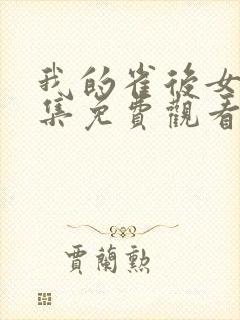 我的雀後女
集免費觀看
賈蘭勲